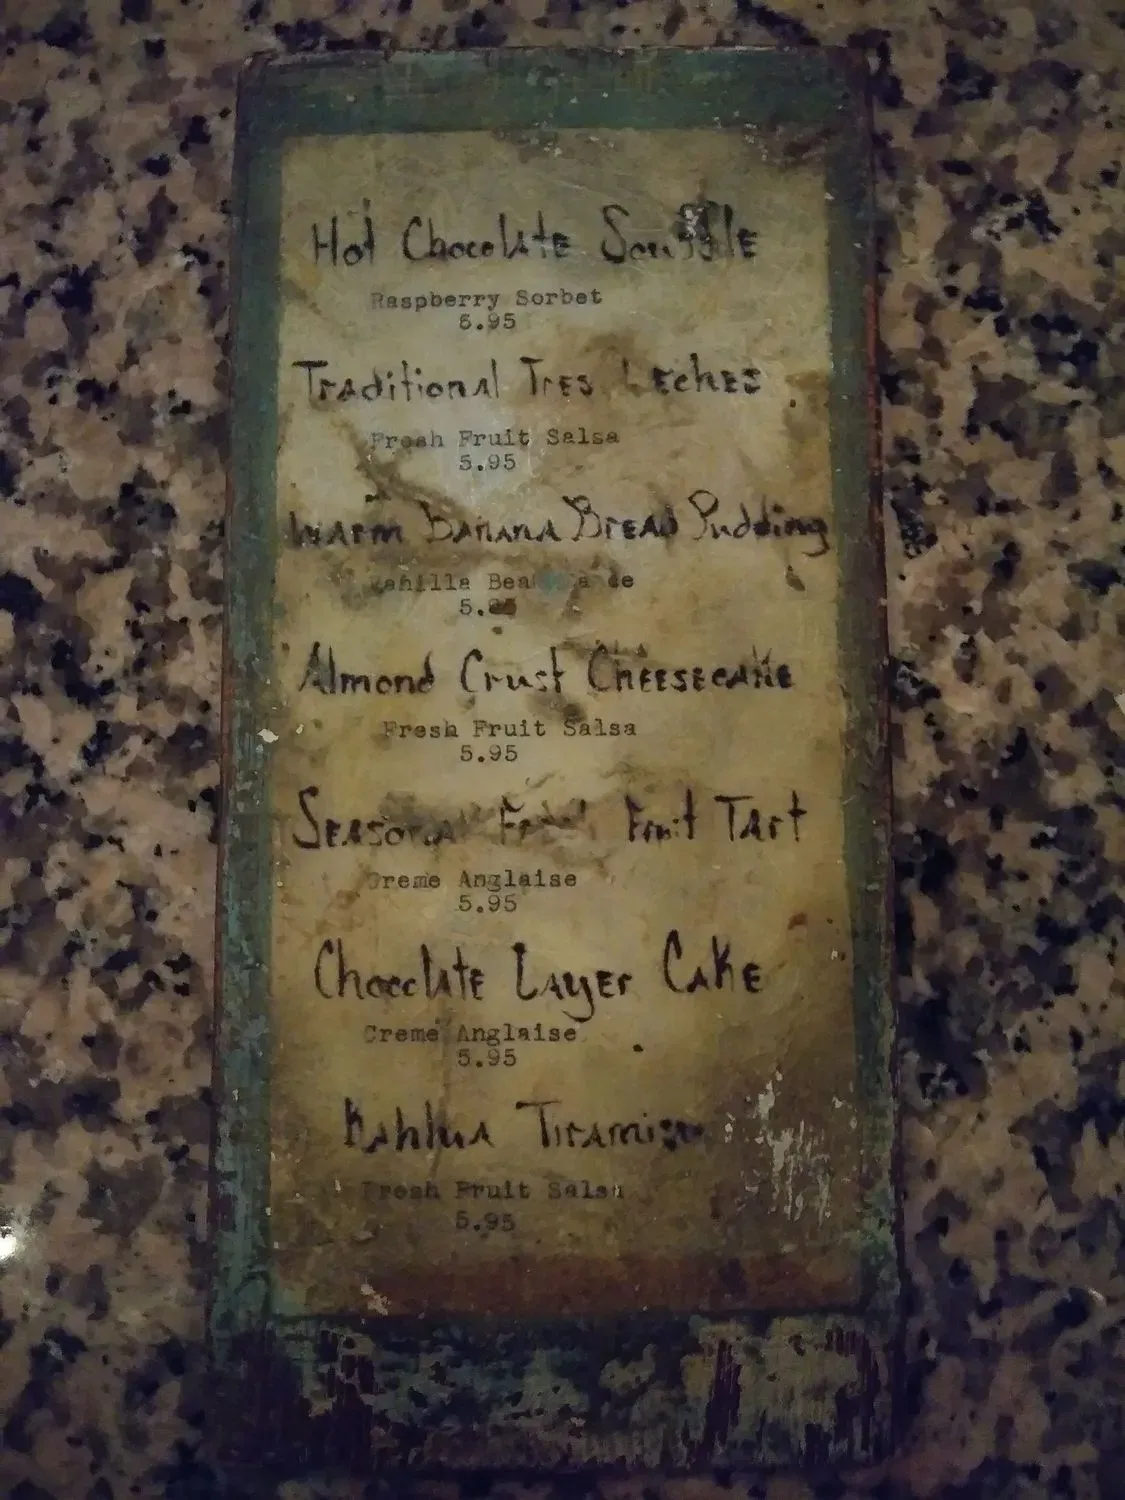 Hot Chocolate Souffle
Raspberry Sorbet
6.95
Traditional Tres Leches
Fresh Fruit Salsa
5.95
Warm Banana Bread Pudding
Vanilla Bean
Almond Crust Cheesecake
Fresh Fruit Salsa
5.95
Seasonal Fruit Tart
Creme Anglaise
5.95
Chocolate Layer Cake
Creme Anglaise
5.95
Kahlua Tiramisu
Fresh Fruit Salsa
5.95